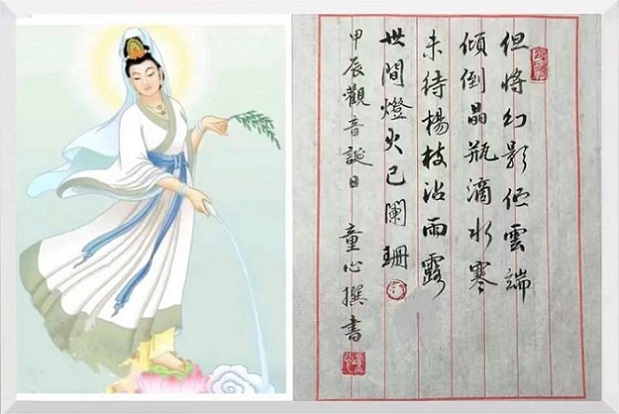 但将幻影雲端
傾倒晶瓶滴水寒
未待楊枝沾雨露
世間燈火已闌珊
甲辰觀音誕日 童心撰書